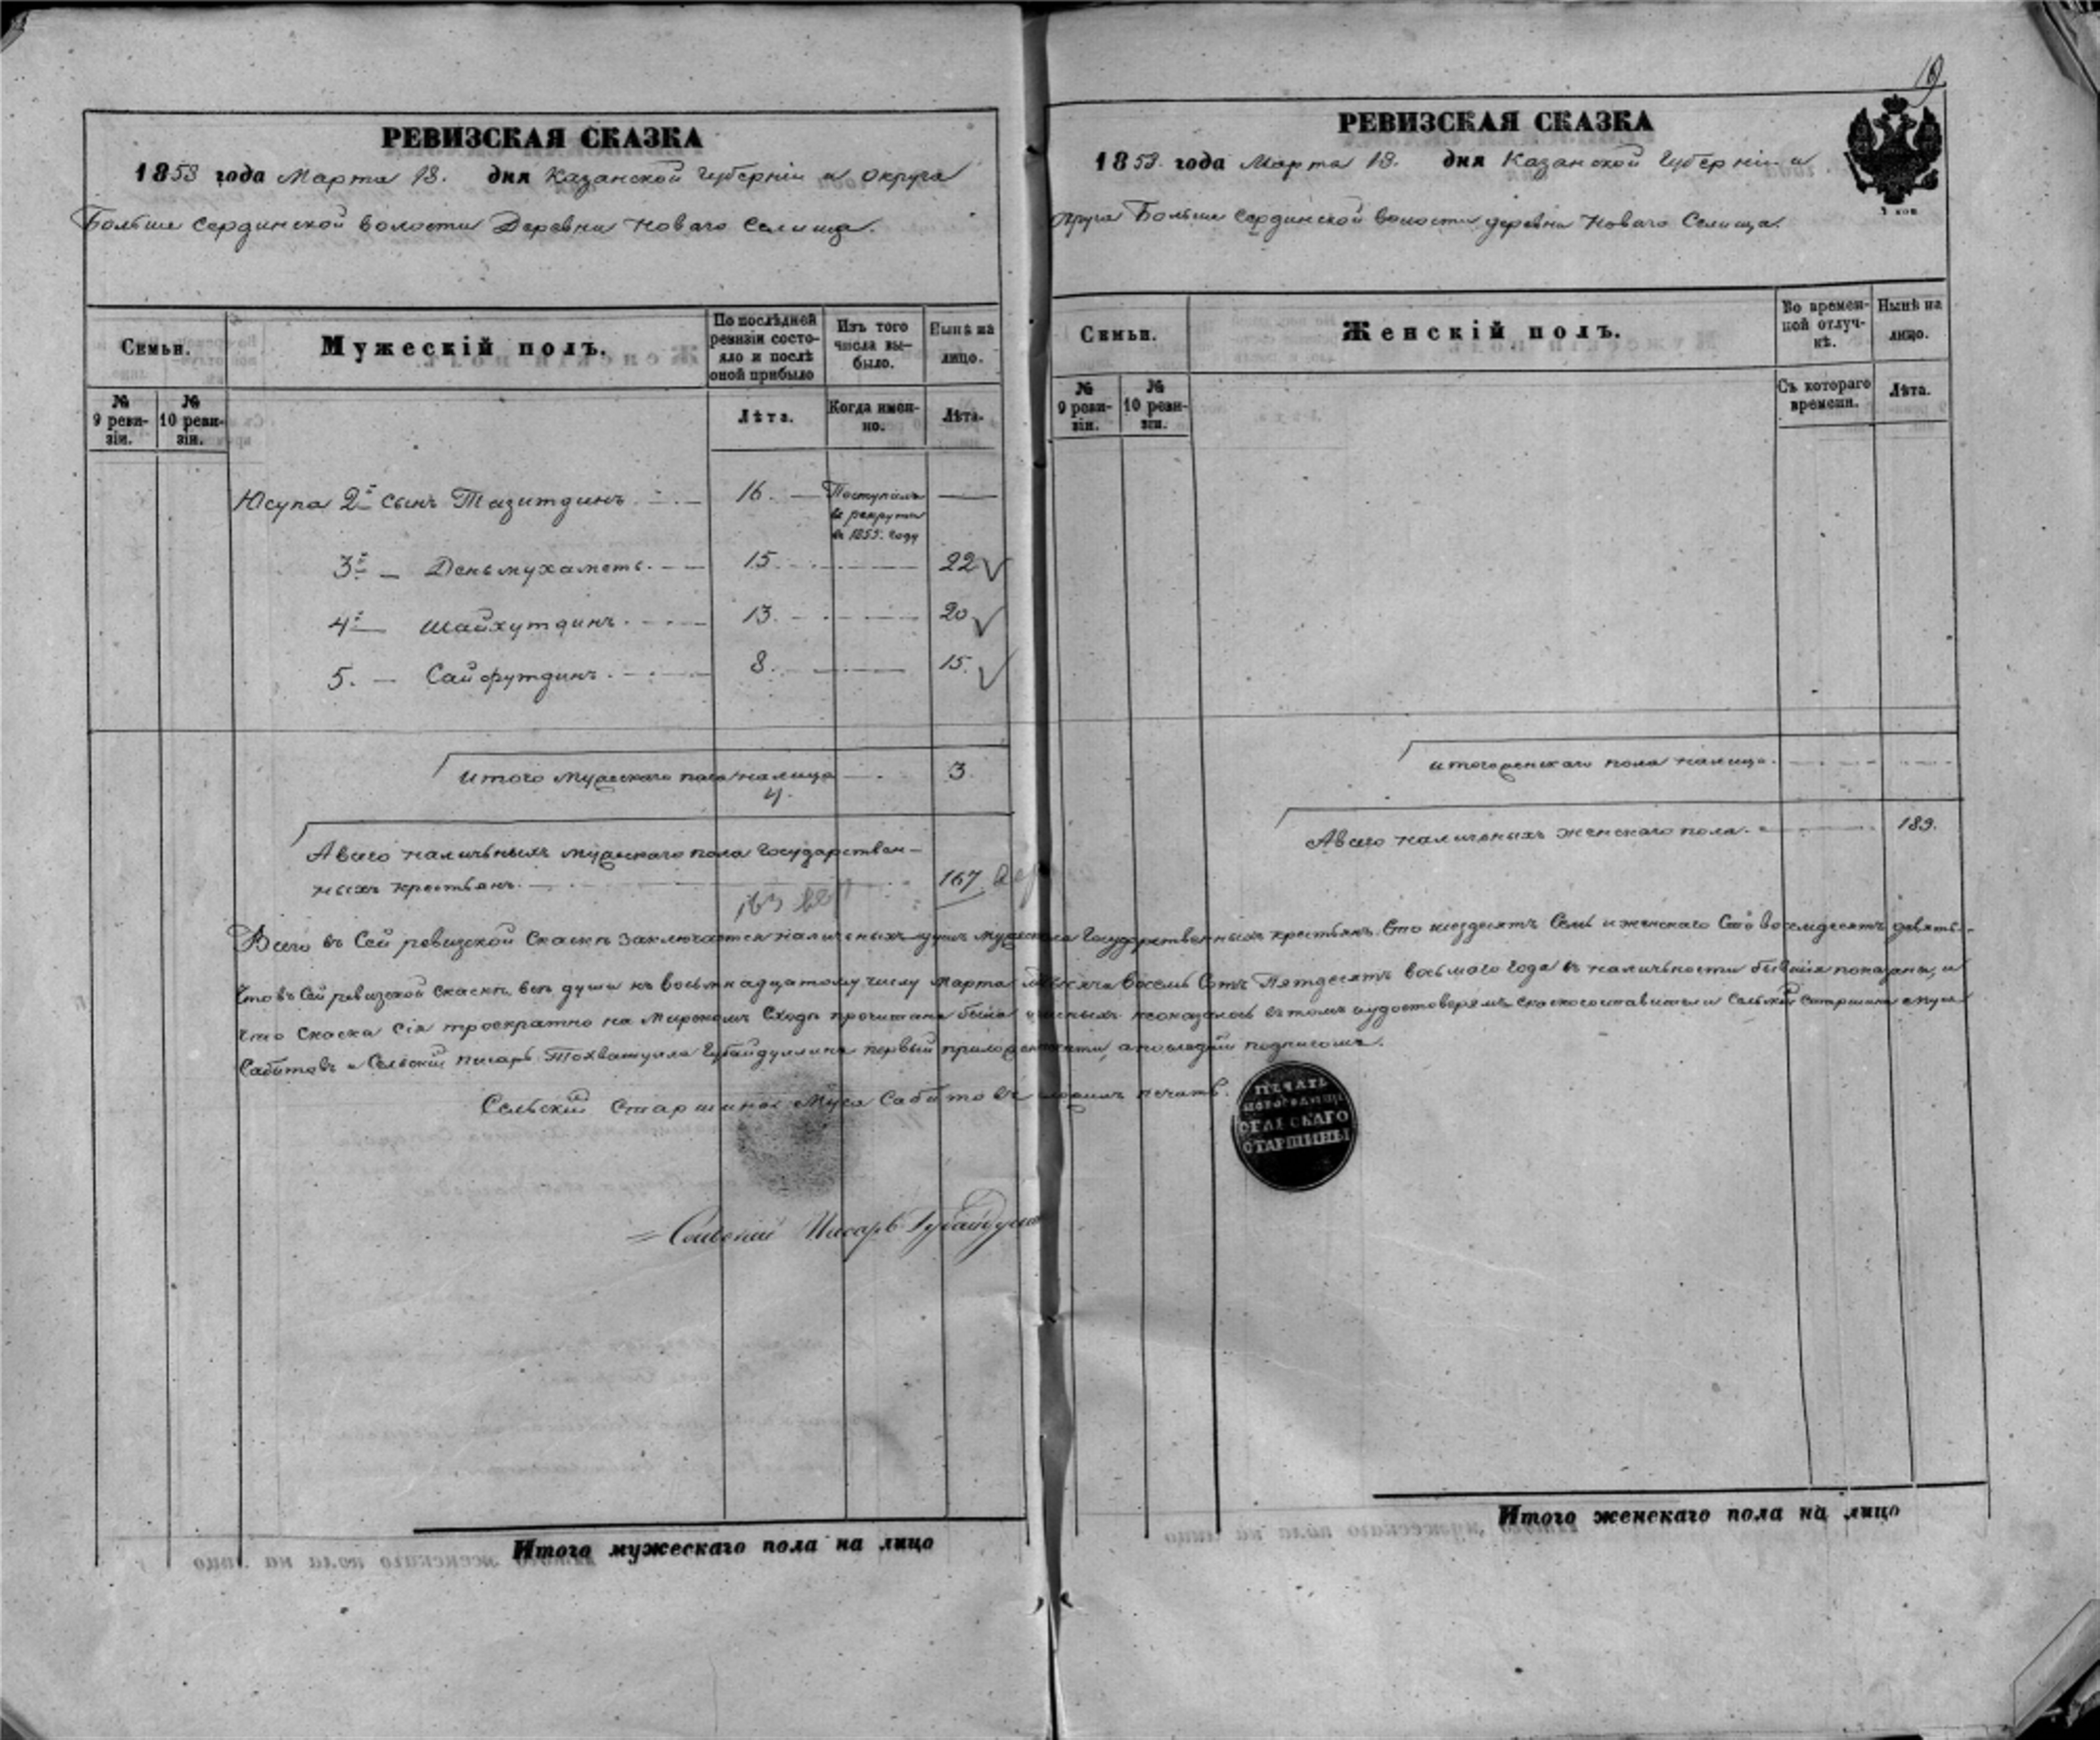 19
РЕВИЗСКАЯ СКАЗКА
1858 года Марта 18. дня Казанской Губерніи и округа
Больше Сердинской волости Деревни Новаго Селища.
Семьи.
Мужескій полъ.
По послѣдней ревизіи состояло и послѣ оной прибыло
Изъ того числа выбыло.
Нынѣ на лицо.
№ 9 ревизіи.
№ 10 ревизіи.
Лѣта.
Когда именно.
Лѣта.
Юсупа 2й сынъ Тазитдинъ 16. Поступилъ
въ рекруты
въ 1855. году
3й — Деньмухаметъ. 15 22
4й — Шайхутдинъ. 13. 20
5. — Сайфутдинъ. 8. 15.
Итого мужескаго пола на лицо 3.
4.
А всего наличныхъ мужескаго пола Государствен-
ныхъ крестьянъ. 167.
163
РЕВИЗСКАЯ СКАЗКА
1858 года Марта 18. дня Казанской Губерніи и
округа Больше Сердинской волости деревни Новаго Селища.
1 коп
Семьи.
Женскій полъ.
Во временной отлучкѣ.
Нынѣ на лицо.
№ 9 ревизіи.
№ 10 ревизіи.
Съ котораго времени.
Лѣта.
Итого женскаго пола на лицо.
А всего наличныхъ женскаго пола. 189.
Всего въ Сей ревизской Сказкѣ заключается наличныхъ душъ муж. пола Государственныхъ крестьянъ Сто шездесятъ Семь и женскаго Сто восемдесятъ девять.
Что въ Сей ревизской сказкѣ всѣ души къ восьмнадцатому числу Марта тысяча восемь Сотъ Пятдесятъ восьмого года въ наличности бывшія показаны, и
Что Сказка Сія троекратно на Мирскомъ Сходѣ прочитана была и неоказалось въ томъ и удостоверяемъ Сельскій Старшина Муса
Сабитовъ и Сельскій писарь Губайдуллинъ первый приложеніемъ печати, а последній подписомъ.
Сельскій Старшина Муса Сабитовъ печать.
ПЕЧАТЬ
СЕЛЬСКАГО
СТАРШИНЫ
Сельскій Писарь Губайдуллинъ
Итого мужескаго пола на лицо
Итого женскаго пола на лицо